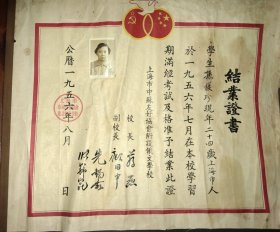 結業證書
學生 現年二十四歲上海市人
於一九五六年七月在本校學習
期滿經考試及格准予結業此證
上海市中蘇友好協會附設俄文學校
校長
副校長
公曆一九五六年八月 日